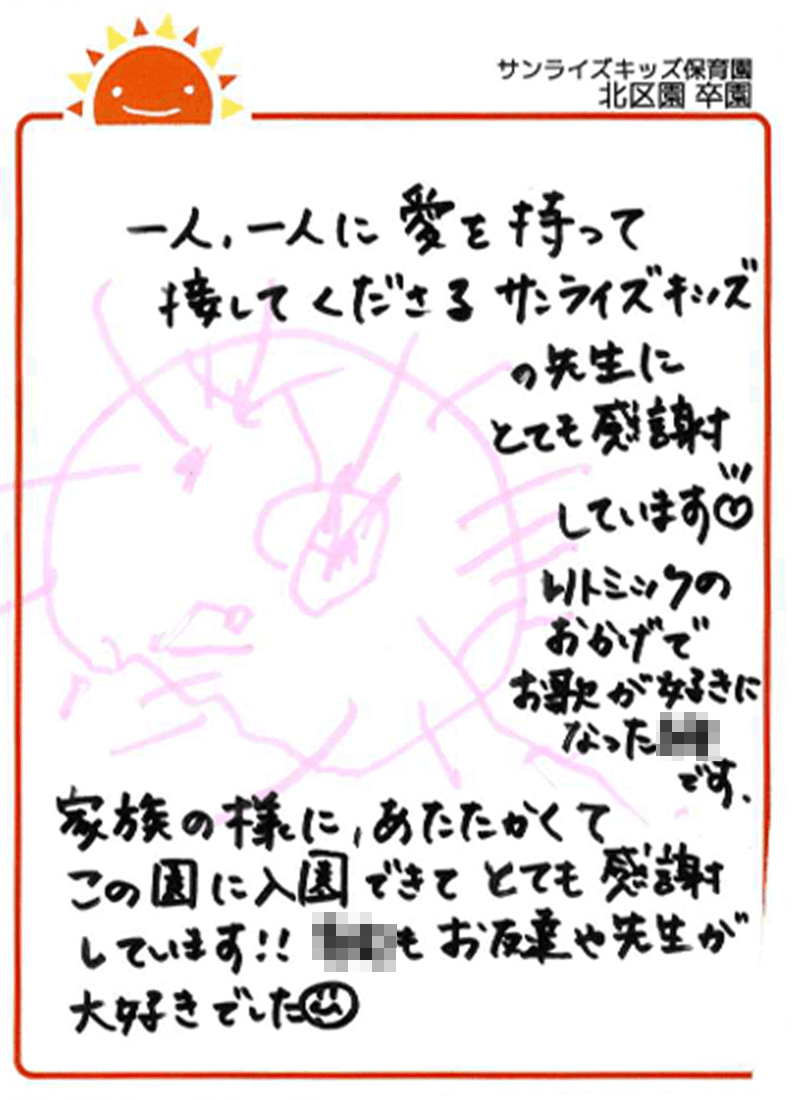 サンライズキッズ保育園
北区園 卒園
一人,一人に愛を持って
接してくださるサンライズキッズ
の先生に
とても感謝
しています♡
リトミックの
おかげで
お歌が好きに
なった
です.
家族の様に,あたたかくて
この園に入園できてとても感謝
しています!! もお友達や先生が
大好きでした☺